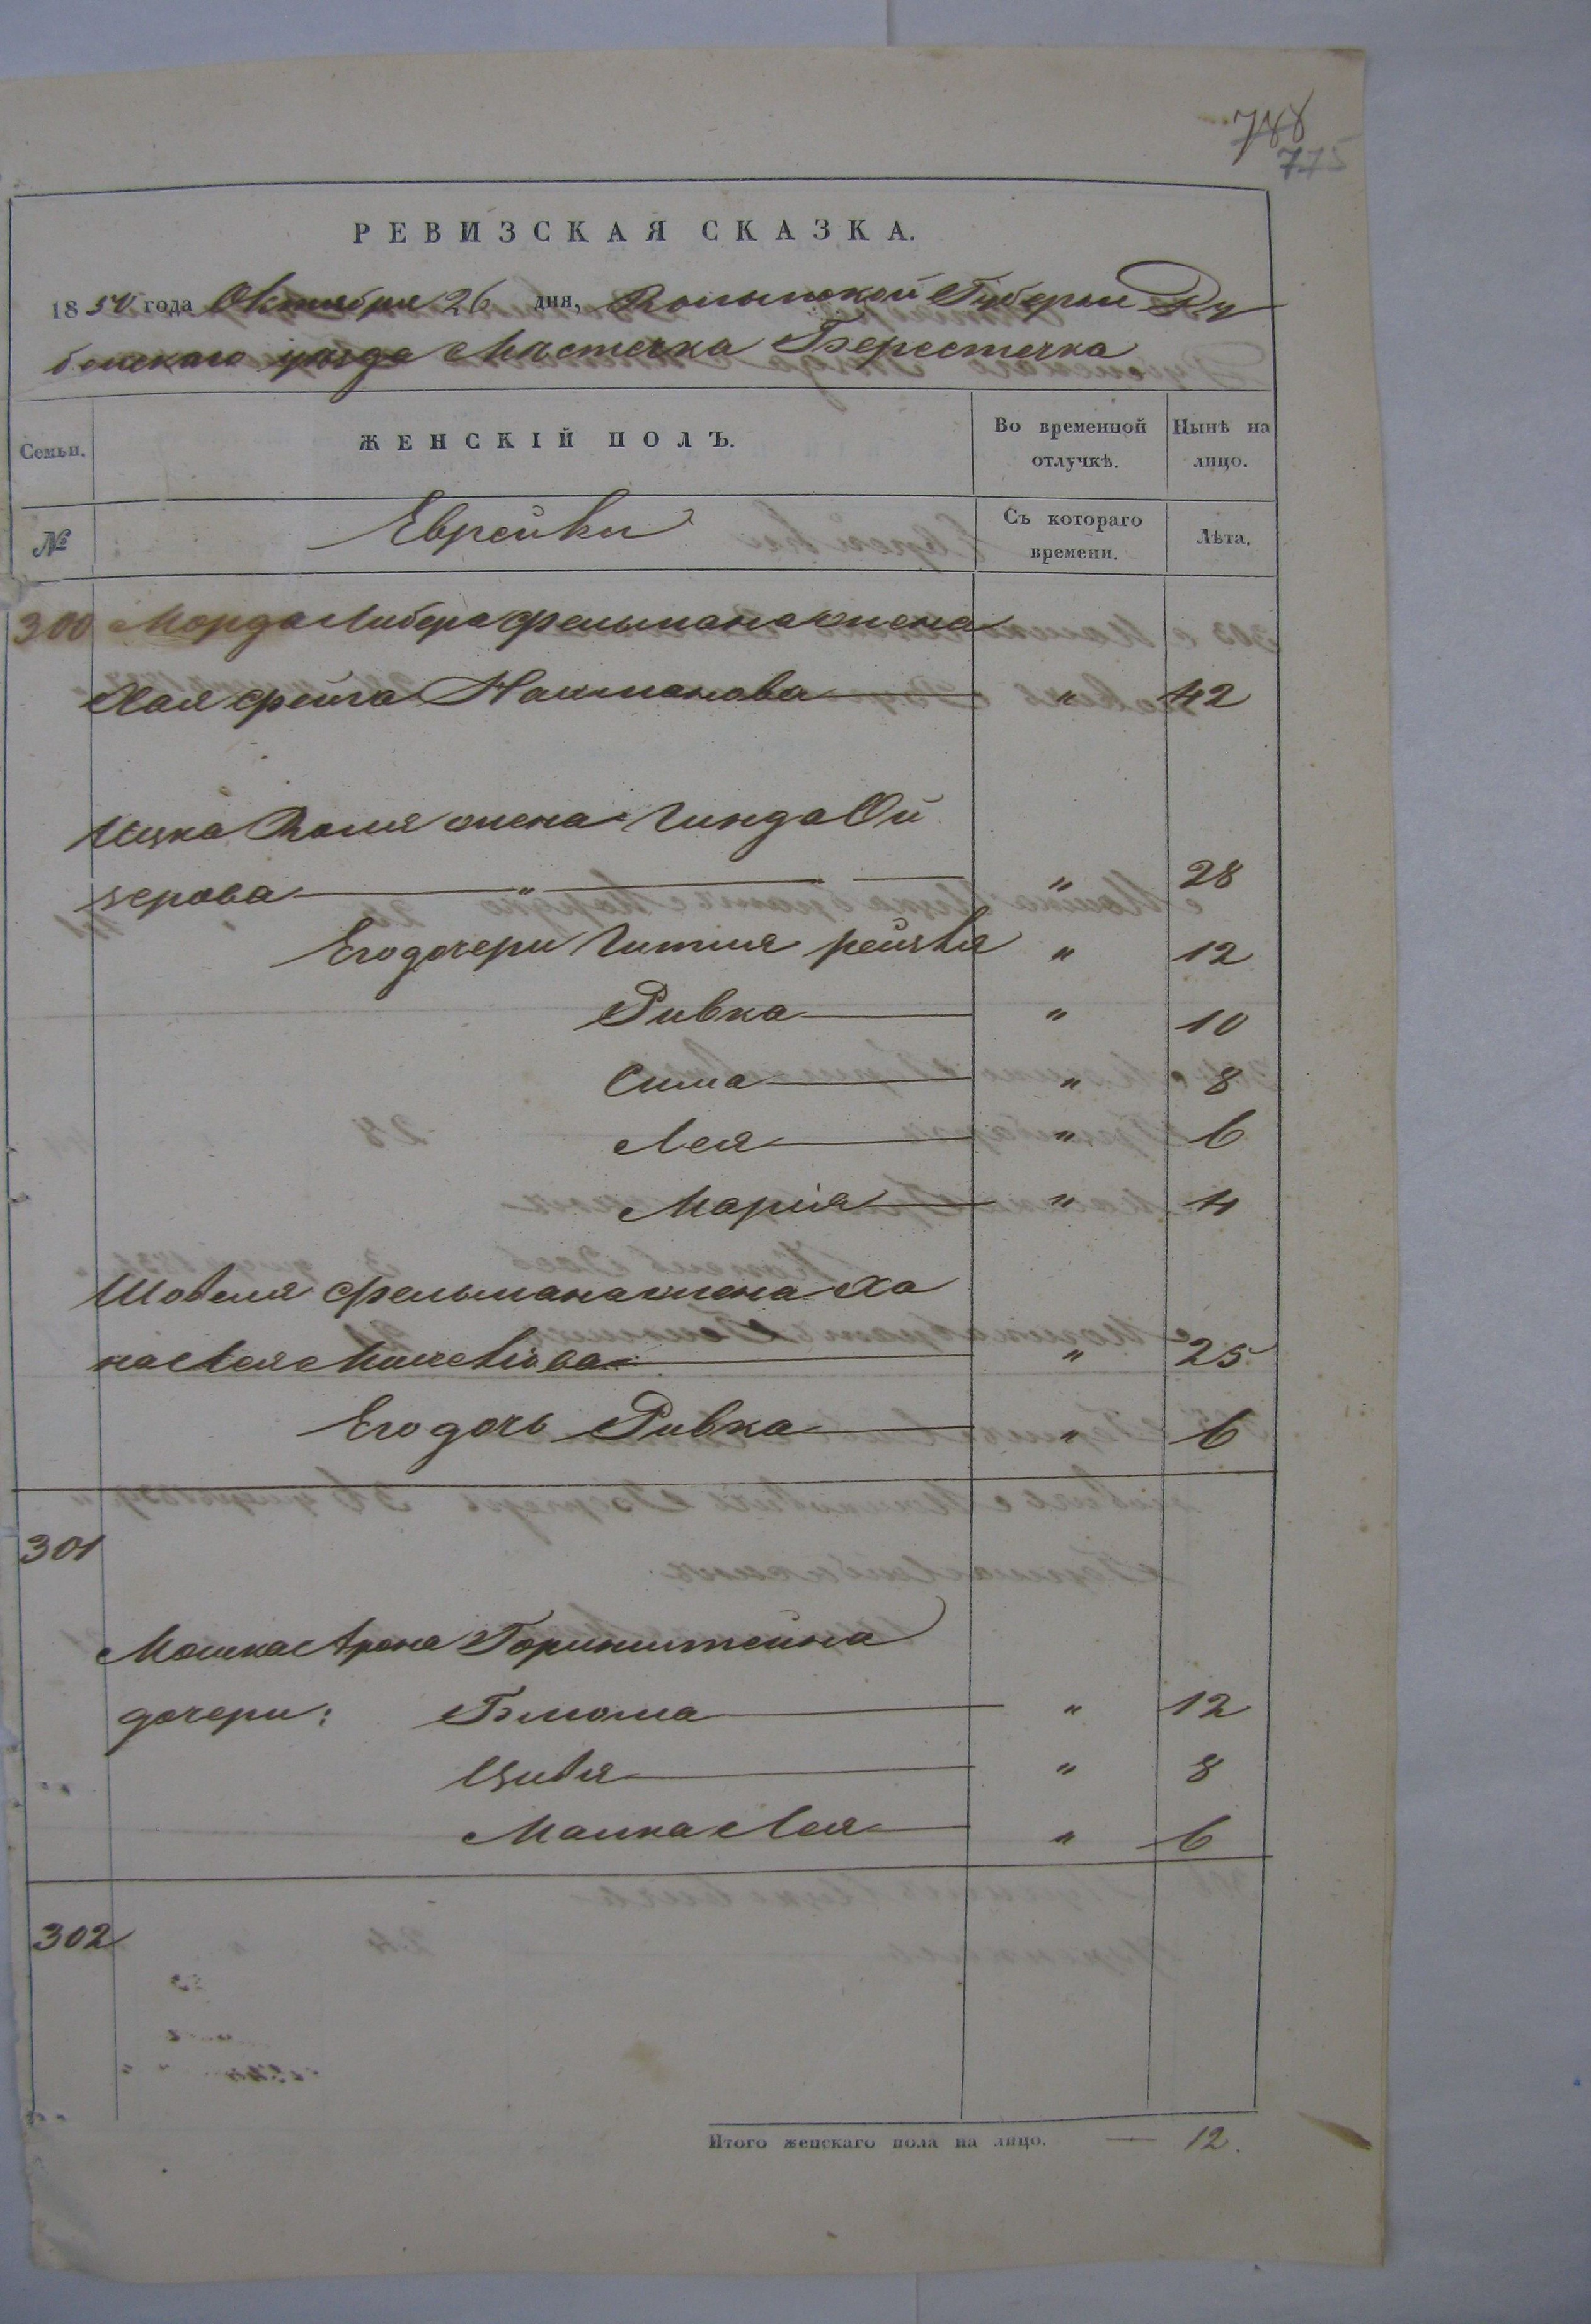 788
775
РЕВИЗСКАЯ СКАЗКА.
1850 года Октября 26 дня, Волынской Губернии Ду
бенскаго уезда Местечка Берестечка
Семьи. ЖЕНСКІЙ ПОЛЪ. Во временной отлучкѣ. Нынѣ на лицо.
№ Еврейки Съ котораго времени. Лѣта.
300 Морда Либера Фельтмана жена
Хая Фейга Нахманова " 42
Ицка Волия жена Гинда Ой
зерова " " 28
Его дочери Гитля Рейзля " 12
Ривка " 10
Сима " 8
Лея " 6
Марія " 4
Шовеля Фельтмана жена Ха
на Лея " 25
Его дочь Ривка " 6
301
Мошка Арона Горинштейна
дочери: Блюма " 12
Цивя " 8
Малка Лея " 6
302
Итого женскаго пола на лицо. — 12.